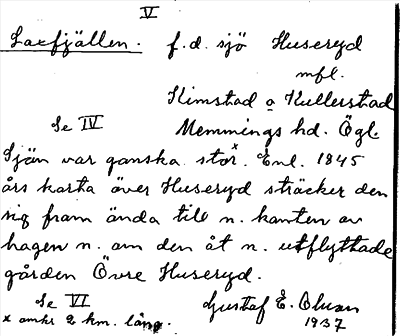 V
Laxfjällen. f.d. sjö Huseryd
mfl.
Kimstad o Kullerstad
Se IV Memmings hd. Ögl.
Sjön var ganska stor x. Enl. 1845
års karta över Huseryd sträcker den
sig fram ända till n. kanten av
hagen n. om den åt n. utflyttade
gården Övre Huseryd.
Se VI Gustaf E. Olson
x omkr 2 km. lång. 1937